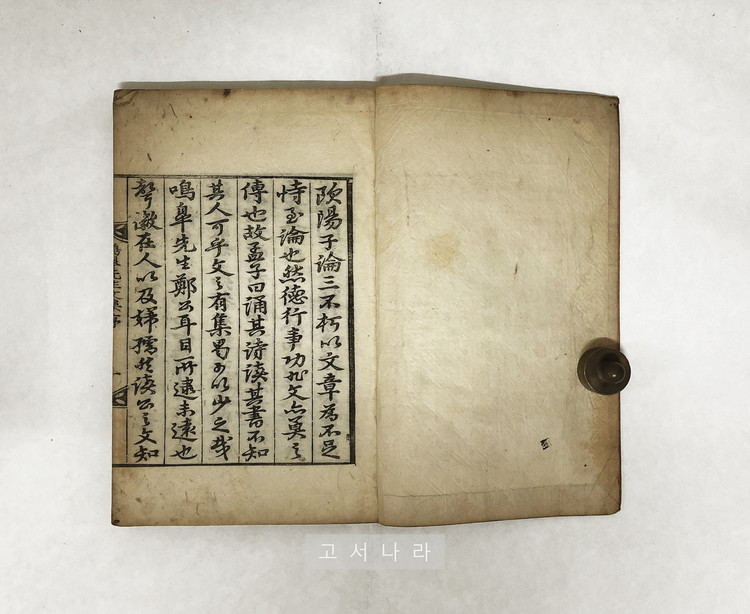 歐陽子論三不朽以文章為不足
恃至論也然德行事功非文亦莫之
傳也故孟子曰誦其詩讀其書不知
其人可乎文之有集曷可以少之哉
鳴皐先生鄭公耳目所逮未遠也
聲徽在人以及婦孺然讀公之文知
鳴皐先生文集序
一
고서나라